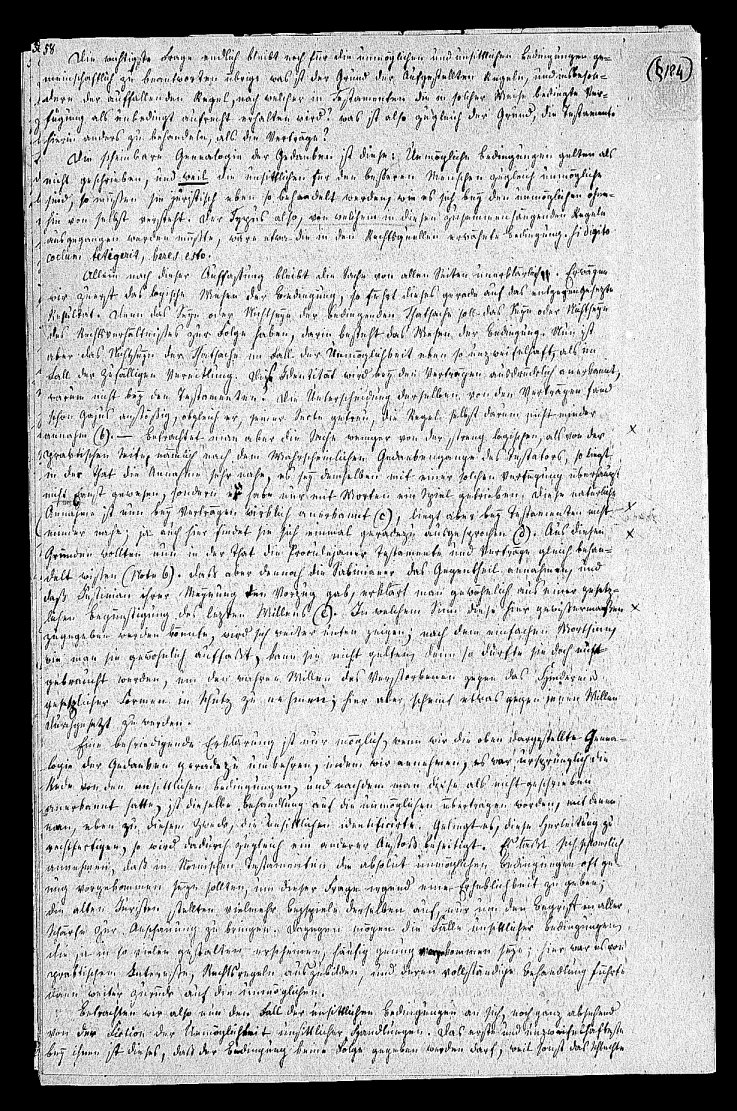 58
§124
Die wichtigste Frage endlich bleibt noch für die unmöglichen und unsittlichen Bedingungen ge-
meinschaftlich zu beantworten übrig: was ist der Grund der aufgestellten Regeln, und insbeson-
dere der auffallenden Regel, nach welcher in Testamenten die in solcher Weise bedingte Ver-
fügung als unbedingt aufrecht erhalten wird? was ist also zugleich der Grund, die Testamente
hierin anders zu behandeln, als die Verträge?
Die scheinbare Genealogie der Gedanken ist diese: Unmögliche Bedingungen gelten als
nicht geschrieben, und weil die unsittlichen für den besseren Menschen zugleich unmögliche
sind, so müssen sie juristisch eben so behandelt werden, wie es sich bey den unmöglichen ohne-
hin von selbst versteht. Der Typus also, von welchem in diesen zusammenhängenden Regeln
ausgegangen werden müßte, wäre etwa die in den Rechtsquellen erwähnte Bedingung: si digito
coelum tetigerit, heres esto.
Allein nach dieser Auffassung bleibt die Sache von allen Seiten unerklärlich. Erwägen
wir zuerst das logische Wesen der Bedingung, so führt dieses gerade auf das entgegengesetzte
Resultat. Denn das Seyn oder Nichtseyn der bedingenden Thatsache soll das Seyn oder Nichtseyn
des Rechtsverhältnisses zur Folge haben, darin besteht das Wesen der Bedingung. Nun ist
aber das Nichtseyn der Thatsache im Fall der Unmöglichkeit eben so unzweifelhaft, als im
Fall der zufälligen Vereitlung. Diese Identität wird bey den Verträgen ausdrücklich anerkannt,
warum nicht bey den Testamenten? Die Unterscheidung derselben von den Verträgen fand
schon Gajus anstößig, obgleich er, seiner Secte getreu, die Regel selbst darum nicht minder
annahm (b). — Betrachtet man aber die Sache weniger von der streng logischen, als von der
praktischen Seite, nämlich nach dem wahrscheinlichen Gedankengange des Testators, so liegt
in der That die Annahme sehr nahe, es sey demselben mit einer solchen Verfügung überhaupt
nicht Ernst gewesen, sondern er habe nur mit Worten ein Spiel getrieben. Diese natürliche
Annahme ist nun bey Verträgen wirklich anerkannt (c), liegt aber bey Testamenten nicht
minder nahe; ja auch hier findet sie sich einmal geradezu ausgesprochen (d). Aus diesen
Gründen wollten nun in der That die Proculejaner Testamente und Verträge gleich behan-
delt wissen (Note b). Daß aber dennoch die Sabinianer das Gegentheil annahmen, und
daß Justinian ihrer Meynung den Vorzug gab, erklärt man gewöhnlich aus einer gesetz-
lichen Begünstigung des letzten Willens (e). In welchem Sinn diese hier gewissermaaßen
zugegeben werden könnte, wird sich weiter unten zeigen; nach dem einfachen Wortsinn,
wie man sie gewöhnlich auffaßt, kann sie nicht gelten, denn so dürfte sie doch nur
gebraucht werden, um den wahren Willen des Verstorbenen gegen das Hinderniß
gesetzlicher Formen in Schutz zu nehmen; hier aber scheint etwas gegen jenen Willen
durchgesetzt zu werden.
Eine befriedigende Erklärung ist nur möglich, wenn wir die oben dargestellte Genea-
logie der Gedanken geradezu umkehren, indem wir annehmen, es war ursprünglich die
Rede von den unsittlichen Bedingungen, und nachdem man diese als nicht geschrieben
anerkannt hatte, ist dieselbe Behandlung auf die unmöglichen übertragen worden, mit denen
man, eben zu diesem Zweck, die unsittlichen identificirte. Gelingt es, diese Herleitung zu
rechtfertigen, so wird dadurch zugleich ein anderer Anstoß beseitigt. Es läßt sich schwerlich
annehmen, daß in Römischen Testamenten die absolut unmöglichen Bedingungen oft ge-
nug vorgekommen seyn sollten, um dieser Frage irgend eine Erheblichkeit zu geben;
die alten Juristen stellten vielmehr Beyspiele derselben auf, nur um den Begriff in aller
Schärfe zur Anschauung zu bringen. Dagegen mögen die Fälle unsittlicher Bedingungen,
die ja in so vielen Gestalten erscheinen, häufig genug vorgekommen seyn; hier war es von
praktischem Interesse, Rechtsregeln auszubilden, und deren vollständige Behandlung führte
dann weiter zurück auf die unmöglichen.
Betrachten wir also nun den Fall der unsittlichen Bedingungen an sich, noch ganz absehend
von der Fiction der Unmöglichkeit unsittlicher Handlungen. Das erste und unzweifelhafteste
bey ihnen ist dieses, daß der Bedingung keine Folge gegeben werden darf, weil sonst das Schlechte